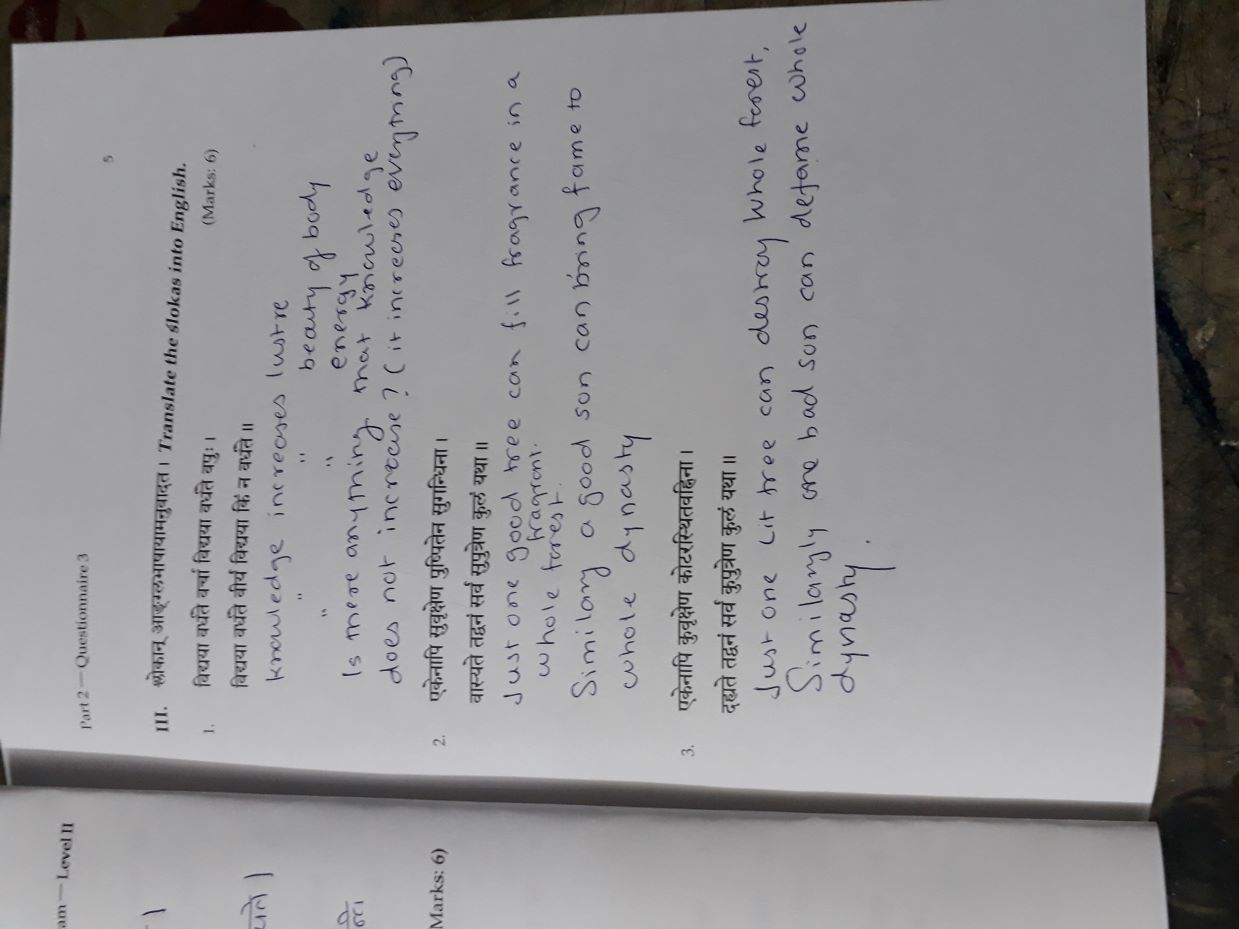 am — Level II
Part 2 — Questionnaire 3
5
।
यते।
न्ते।
Marks: 6)
III. श्लोकान् आङ्ग्लभाषायामनुवादत। Translate the ślokas into English.
1. विद्यया वर्धते वर्चो विद्यया वर्धते वपुः। (Marks: 6)
विद्यया वर्धते वीर्यं विद्यया किं न वर्धते॥
knowledge increases lustre
" " beauty of body
" " energy
Is there anything that knowledge
does not increase? (it increeses everything)
2. एकेनापि सुवृक्षेण पुष्पितेन सुगन्धिना।
वास्यते तद्वनं सर्वं सुपुत्रेण कुलं यथा॥
Just one good tree can fill fragrance in a
fragrent.
whole forest.
Similary a good son can bring fame to
whole dynasty
3. एकेनापि कुवृक्षेण कोटरस्थितवह्निना।
दह्यते तद्वनं सर्वं कुपुत्रेण कुलं यथा॥
Just one lit tree can destroy whole forest,
Similaryly one bad son can defame whole
dynasty.